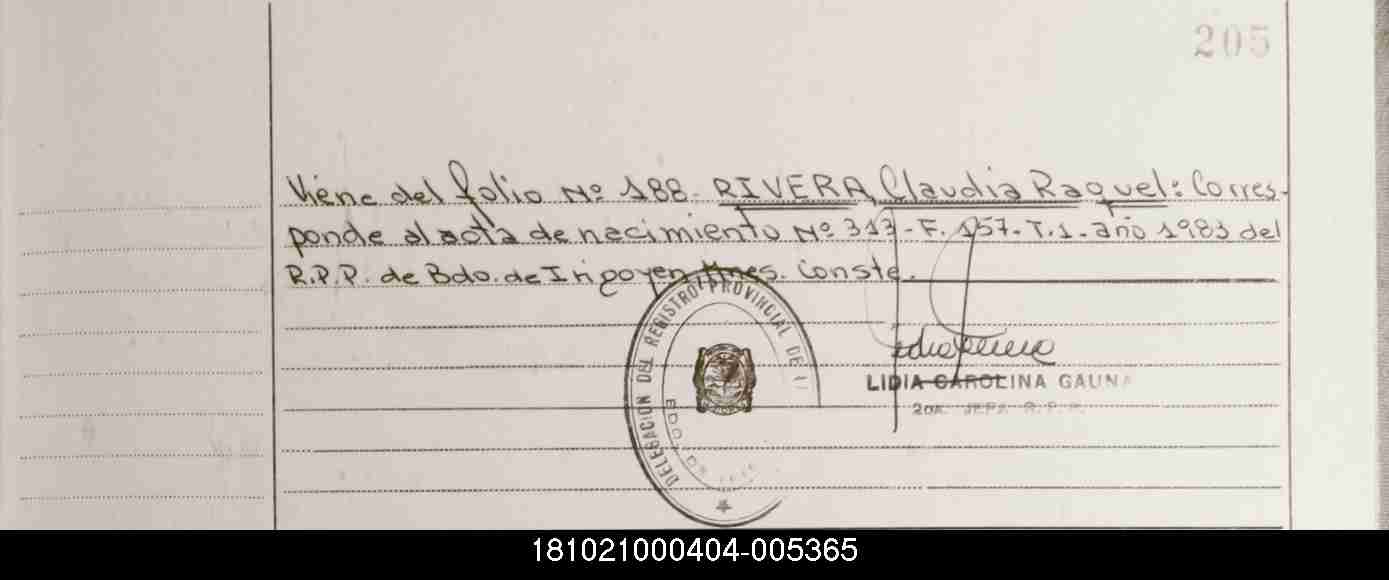 205
Viene del folio Nº 188- RIVERA, Claudia Raquel: Corres-
ponde al acta de nacimiento Nº 313-F. 157-T.1-año 1983 del
R.P.P. de Bdo. de Irigoyen, Mnes. Conste.
DELEGACION DEL REGISTRO PROVINCIAL DE
LIDIA CAROLINA GAUNA
2da. JEFA R.P.P.
181021000404-005365